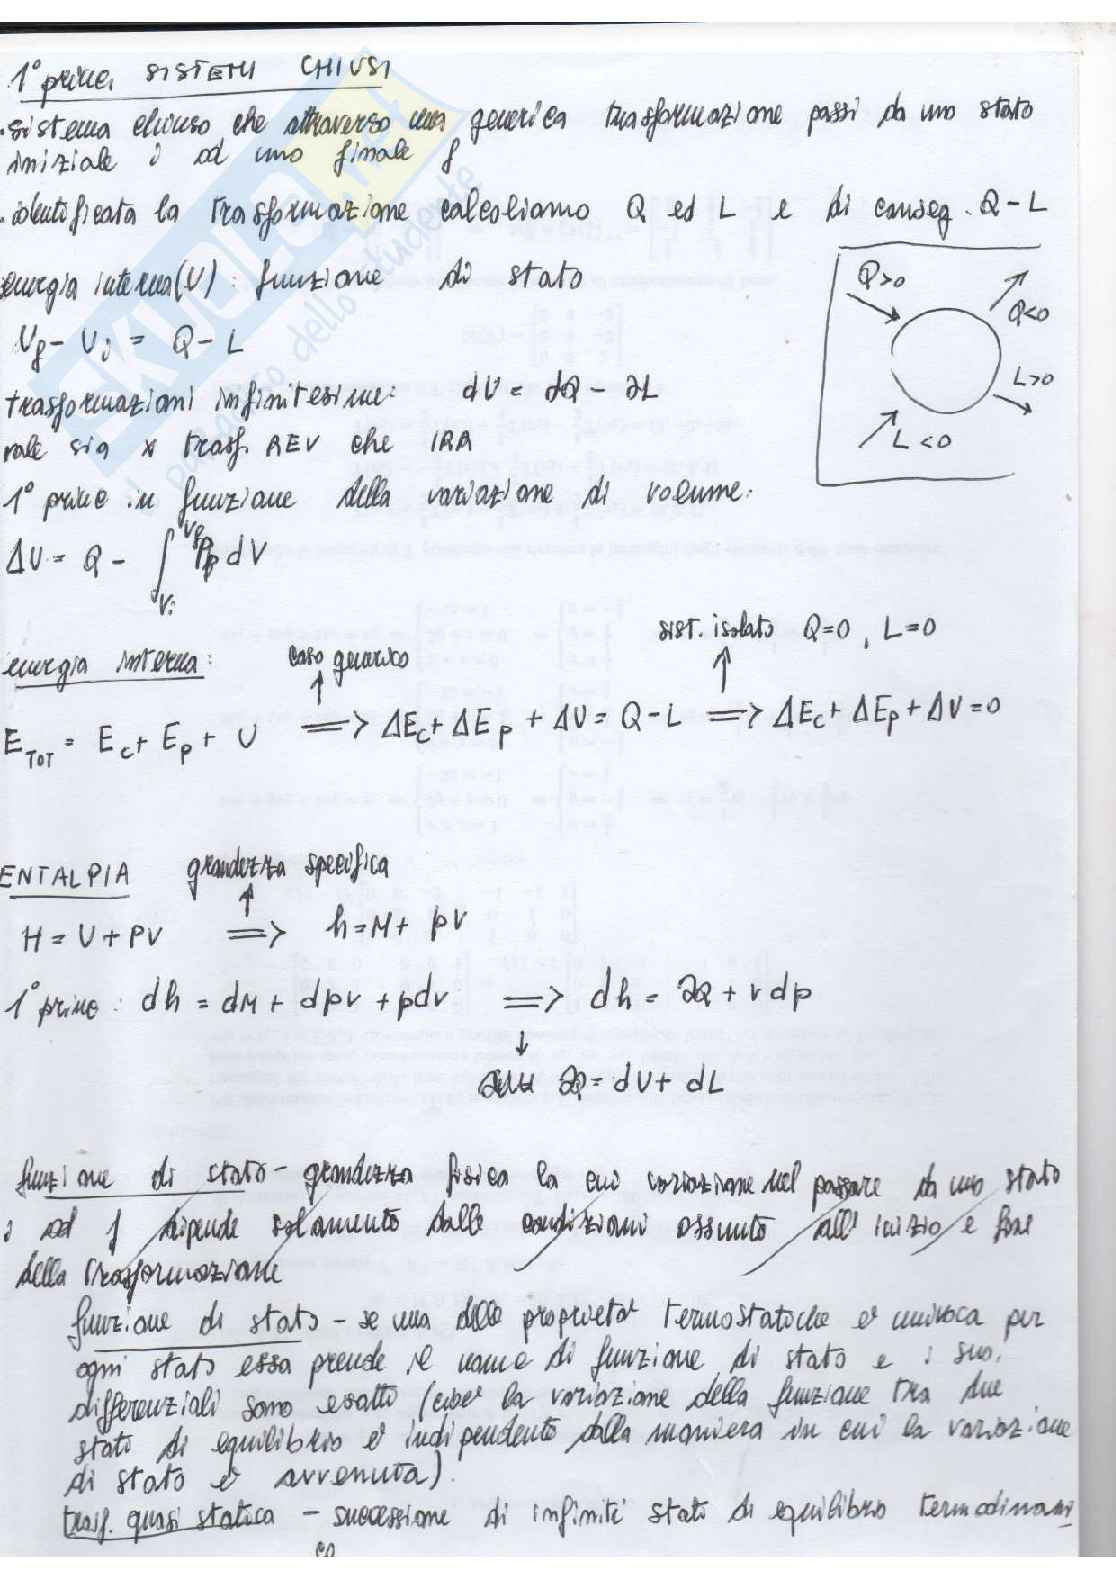 1° princ. SISTEMI CHIUSI
. sistema chiuso che attraverso una generica trasformazione passi da uno stato
iniziale i ad uno finale f
. identificata la trasformazione calcoliamo Q ed L e di conseg. Q - L
energia interna (U) : funzione di stato
Q>0
Q<0
L>0
L<0
Uf - Ui = Q - L
trasformazioni infinitesime: dU = ∂Q - ∂L
vale sia x trasf. REV che IRR
1° princ in funzione della variazione di volume:
ΔU = Q - ∫ Vi Vf p dV
sist. isolato Q=0, L=0
energia interna: caso generico
E TOT = Ec + Ep + U => ΔEc + ΔEp + ΔU = Q - L => ΔEc + ΔEp + ΔU = 0
ENTALPIA grandezza specifica
H = U + PV => h = u + pv
1° princ : dh = du + dpv + pdv => dh = ∂Q + vdp
∂Q = dU + dL
funzione di stato - grandezza fisica la cui variazione nel passare da uno stato
i ad f dipende solamente dalle condizioni assunte all' inizio e fine
della trasformazione
funzione di stato - se una delle proprietà termostatiche è univoca per
ogni stato essa prende il nome di funzione di stato e i suoi
differenziali sono esatti (cioè la variazione della funzione tra due
stati di equilibrio è indipendente dalla maniera in cui la variazione
di stato è avvenuta).
trasf. quasi statica - successione di infiniti stati di equilibrio termodinami
co
SKUOLA.net
il paradiso dello studente